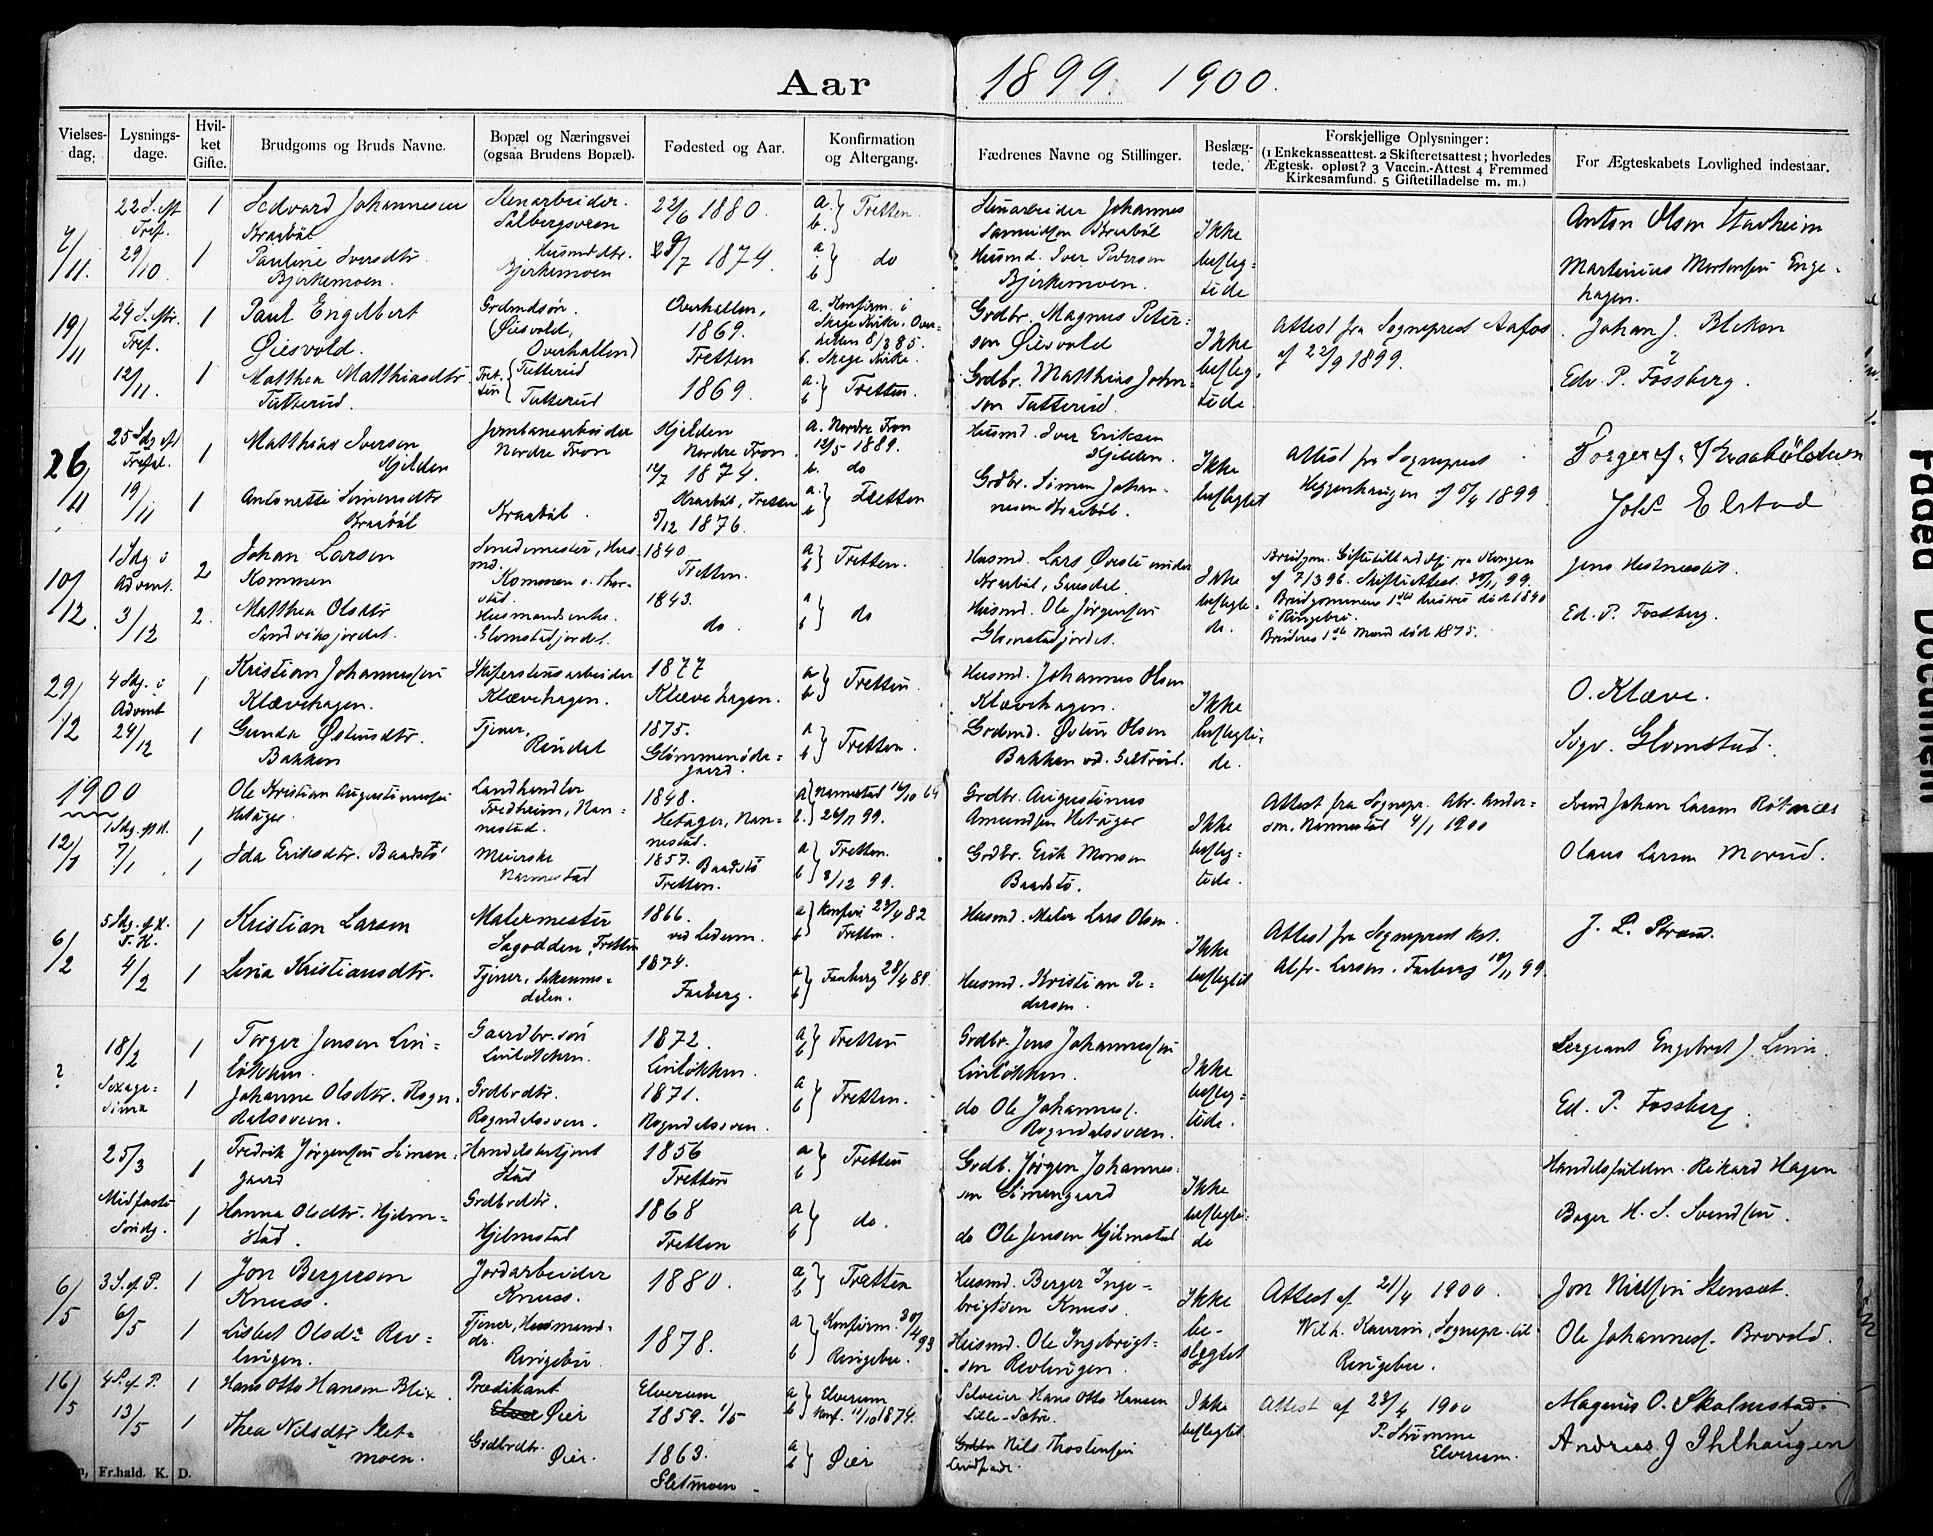 Aar 1899. 1900.
Vielses-dag. Lysnings-dage. Hvil-ket Gifte. Brudgoms og Bruds Navne. Bopæl og Næringsvei (ogsaa Brudens Bopæl). Fødested og Aar. Konfirmation og Altergang. Fædrenes Navne og Stillinger. Beslæg-tede. Forskjellige Oplysninger: (1 Enkekasseattest. 2 Skifteretsattest; hvorledes Ægtesk. opløst? 3 Vaccin.-Attest 4 Fremmed Kirkesamfund. 5 Giftetilladelse m. m.) For Ægteskabets Lovlighed indestaar.
22 S. eft Tref. 1 Edvard Johannesen Kraabøl Stenarbeider 22/6 1880. a. b. } Tretten. Stenarbeider Johannes Kraabøl Ikke beslegtede Anton Olsen Stavheim
/11. 29/10. 1 Pauline Iversdtr. Bjerkemoen. Husmdtr. Bjerkemoen /7 1874. a b } do Husmd. Iver Pedersen Bjerkemoen. Martinius Mortensen Engehagen.
19/11 24 S. eftr. Tref. 1 Paul Engelbert Øiesvold. Grdmdsøn. Øiesvold, Overhallen Overhallen, 1869. a. Konfirm. i Skage Kirke. Overhallen 1885. b. Skage Kirke. Grdbr. Magnus Peterson Øiesvold Ikke beslegtede Attest fra Sogneprest Aafos af 22/9 1899. Johan J. Bleken
12/11. 1 Matthea Matthiasdtr Tutterud. Tretten { Tutterud Tretten 1869. a. b } Tretten. Grdbr. Matthias Johnson Tutterud. Edv. P. Fossberg.
26/11 25 Sdg. eft Trefol. 1 Matthias Iversen Hjelden Jernbanearbeider Nordre Fron Hjelden Nordre Fron. 12/7 1874. a. Nordre Fron 12/5 1889. b. do Husmd. Iver Eriksen Hjelden. Ikke beslegtet Attest fra Sogneprest Heggenhaugen af 5/4 1899
19/11 1 Antonette Simensdtr Kraabøl Kraabøl. Kraabøl, Tretten 5/12 1876. a. b } Tretten Grdbr. Simen Johannesen Kraabøl. Johs Elstad
10/12. 1 Sdg i Advent. 2 Johan Larsen Kommen Smedemester, Husmd. 1840 Tretten. a b } Tretten. Husmd. Lars Øvesti under Kraabøl, Gausdal. Ikke beslegtede. Brudgom. Giftetilladelse fra Kongen af 7/3 96. Skifteattest 30/1 99. Brudgommens 1ste hustru død 1890 i Ringebu. Brudens 1ste Mand død 1875.
3/12 2. Matthea Olsdtr Sandviksjordet. Husmandsenke. Glomstadjordet. 1843. do. a b } do Husmd. Ole Jørgensen Glomstadjordet. Ed. P. Fossberg.
29/12 4 Sdg. i Advent 1 Kristian Johannessen Klævehagen. Skiferstensarbeider Klævehagen. 1877 Klævehagen. a b } Tretten. Husmd. Johannes Olsen Klævehagen. Ikke beslegtede. O. Klæve.
24/12 1 Gunda Østensdtr. Bakken Tjener, Rindal 1875. Glommenødegaard. a b } Tretten. Grdmd. Østen Olsen Bakken Sigv. Glomstad.
1900
12/1 1 Sdg. 1 Ole Kristian Augustinusen Hetager. Landhandler Fredheim, Nannestad. 1848. Hetager, Nannestad. a Nannestad 16/10 64 b. 26/11 99. Grdbr. Augustinus Amundsen Hetager Ikke beslegtede. Attest fra Sognepr. Abr. Andersen, Nannestad 4/1 1900 Svend Johan Larsen Rotnæs
7/1. 1 Ida Eriksdtr. Baadstø Meierske Nannestad 1857. Baadstø Tretten. a b } Tretten. 3/12 99. Grdbr. Erik Monsen Baadstø. Olaus Larsen Morud.
6/2 5 Sdg. e. H. T. K. 1 Kristian Larsen Malermester Sagodden, Tretten 1866. a b } Konfir 23/4 82 Tretten. Husmd. Maler Lars Olsen. Ikke beslegtet Attest fra Sogneprest kst. Alfr. Larsen. Faaberg 18/11 99. J. L. Strøm.
4/2 1 Lina Kristiansdtr. Tjener, 1874. Faaberg. a b } Faaberg 28/4 88. Husmd. Kristian Pedersen.
? 18/2 1 Torger Jensen Linløkken. Gaardbr.søn Linløkken. 1872. Linløkken. a b } Tretten Grdbr. Jens Johannessen Linløkken. Ikke beslegtede. Sergeant Engebret J. Linn.
Sexagesima 1 Johanne Olsdtr. Rogndalssveen. Grdbrdtr. Rogndalssveen. 1871. Rogndalssveen. a b } Tretten. do Ole Johannes. Rogndalssveen. Ed. P. Fossberg.
25/3 1 Fredrik Jørgensen Simengaard Handelsbetjent Stad 1856 Tretten a b } Tretten Grdb. Jørgen Johannessen Simengaard Ikke beslegtede Handelsfuldm. Rikard Hagen
Midfaste Søndg. 1 Hanna Olsdtr. Hjelmstad. Grdbrdtr. Hjelmstad 1868 Tretten a b } do. do Ole Jensen Hjelmstad Bager H. S. Svendsen.
6/5 3 S. e. P. 1 Jon Bergerson Knuss. Jordarbeider Knuss. 1880. a b } Tretten Husmd. Berger Ingebrigtsen Knuss. Ikke beslegtet Attest af 21/4 1900. Wilh. Kaurin, Sognepr. til Ringebu. Jon Nielsen Stensæt.
6/5 1 Lisbet Olsdr Revlingen. Tjener, Husmanddr. Ringebu 1878. a b } Konfirm. 30/4 93 Ringebu. Husmd. Ole Ingebrigtsen Revlingen. Ole Johannes. Brovold.
16/5 4 S. e. P. 1 Hans Otto Hansen Blix. Prædikant Øier Elverum 1859. 1/5 a b } Elverum Konf. 11/10 1874. Selveier Hans Otto Hansen Lille-Sætre. Ikke beslegtet Attest af 23/4 1900 P. Strømme Elverum. Magnus O. Skalmstad.
13/5 1 Thea Nilsdtr Sletmoen. Grdbrdtr. Øier. 1863. Sletmoen. a b } Øier Nils Thostensen Andreas J Ihlhaugen
Fr.hald. K. D.
Faded Document